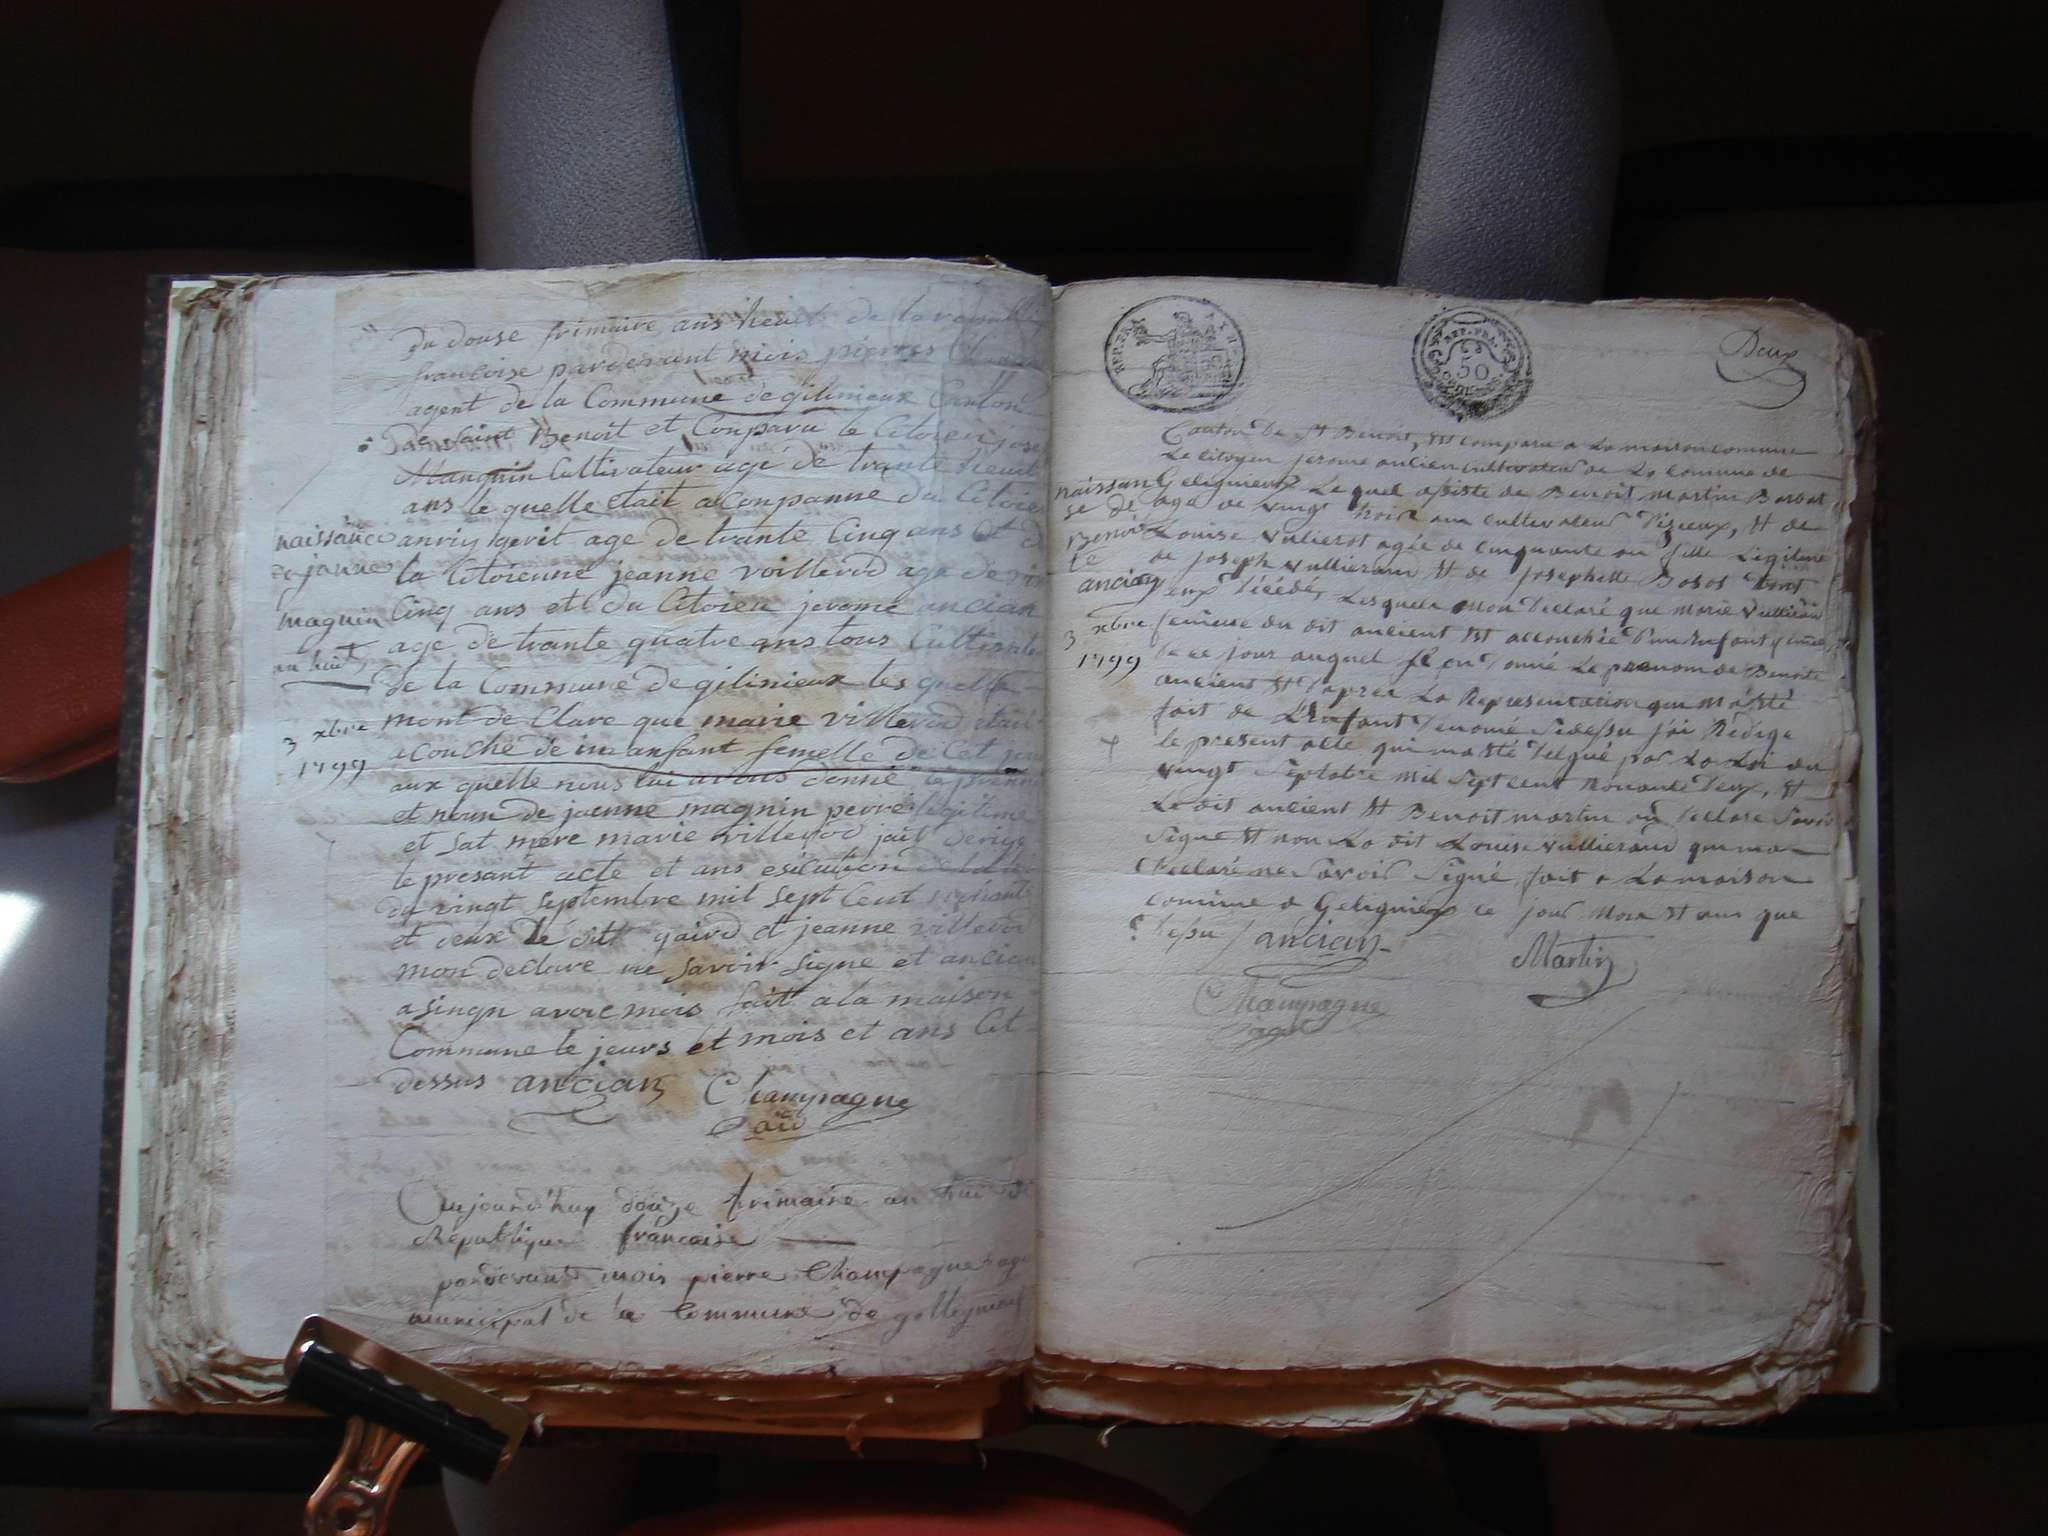 du douse frimaire ans heuit de la republi
francoise pardevant mois pierres Cham
agent de la Commune de gilinieux Canton
de saint Benoit et Conparu le Citoien jose
Manguin Cultivateur agé de trante heuit
ans le quelle etait aconpanné du Citoien
naissance
de janne
magnin
an huit
3 xbre
1799
age de trante Cinq ans et d
la Citoienne jeanne voillerod age de vin
Cinq ans et du Citoien jerome ancian
age de trante quatre ans tous Cultivate
de la Commune de gilinieux les quelle
mont de Clare que marie villerod etait
acouché de un anfant femelle de Cet jou
aux quelle nous lui avons donné le prenon
et noun de jaenne magnin perre legitime
et sat mere marie villerod jait derige
le presant acte et ans esicution de la loi
du vingt septembre mil sept Cent nonante
et deux le ditt gaird et jeanne villerod
mon declare ne savoir signe et ancian
a singn avoic mois fait a la maison
Commune le jeurs et mois et ans Cit
dessus ancian Champagne
Aujourd'huy douze frimaire an huit de
Republique francaise
pardevant mois pierre Champagne age
municipal de la Commune de gellignieux
REP. FRA.
REP. FRA.
50
Deux
Canton de St Benoit, Et compara a La maison commune
Le Citoyen jerome ancien cultivateur de La Commune de
Geligneux Lequel assiste de Benoit martin
naissan
se de
Benoi
te
ancian
3 xbre
1799
age de vingt trois ans cultivateur Dizieux, Et de
Louise vulierot agée de cinquante an fille Legitime
de joseph vullierau Et de josephette Bosos tout
eux décédé, Lesquels mon declaré que marie vullierau
femme du dit ancient Est accouchée d'un Enfant femelle
de ce jour auquel il en donné Le prenom de Benoite
ancient Et d'aprer La Representation qui m'a été
fait de L'Enfant denomé Sidessu j'ai Redige
le present acte qui ma été delgué par La Loi du
vingt Septabre mil Sept cent Nonante deux, Et
Le dit ancient Et Benoit martin on declare Savoir
Signé Et non La dit Louise vullieraud qui ma
declaré ne Savoir Signé fait a La maison
commune a Geligniex ce jour Mois Et ans que
dessu ancian Martin
Champagne
agt